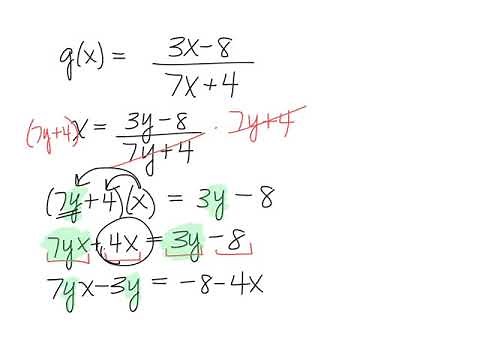 g(x) = (3x-8)/(7x+4)
(7y+4)x = (3y-8)/(7y+4) · 7y+4
(7y+4)(x) = 3y-8
7yx+4x = 3y-8
7yx-3y = -8-4x